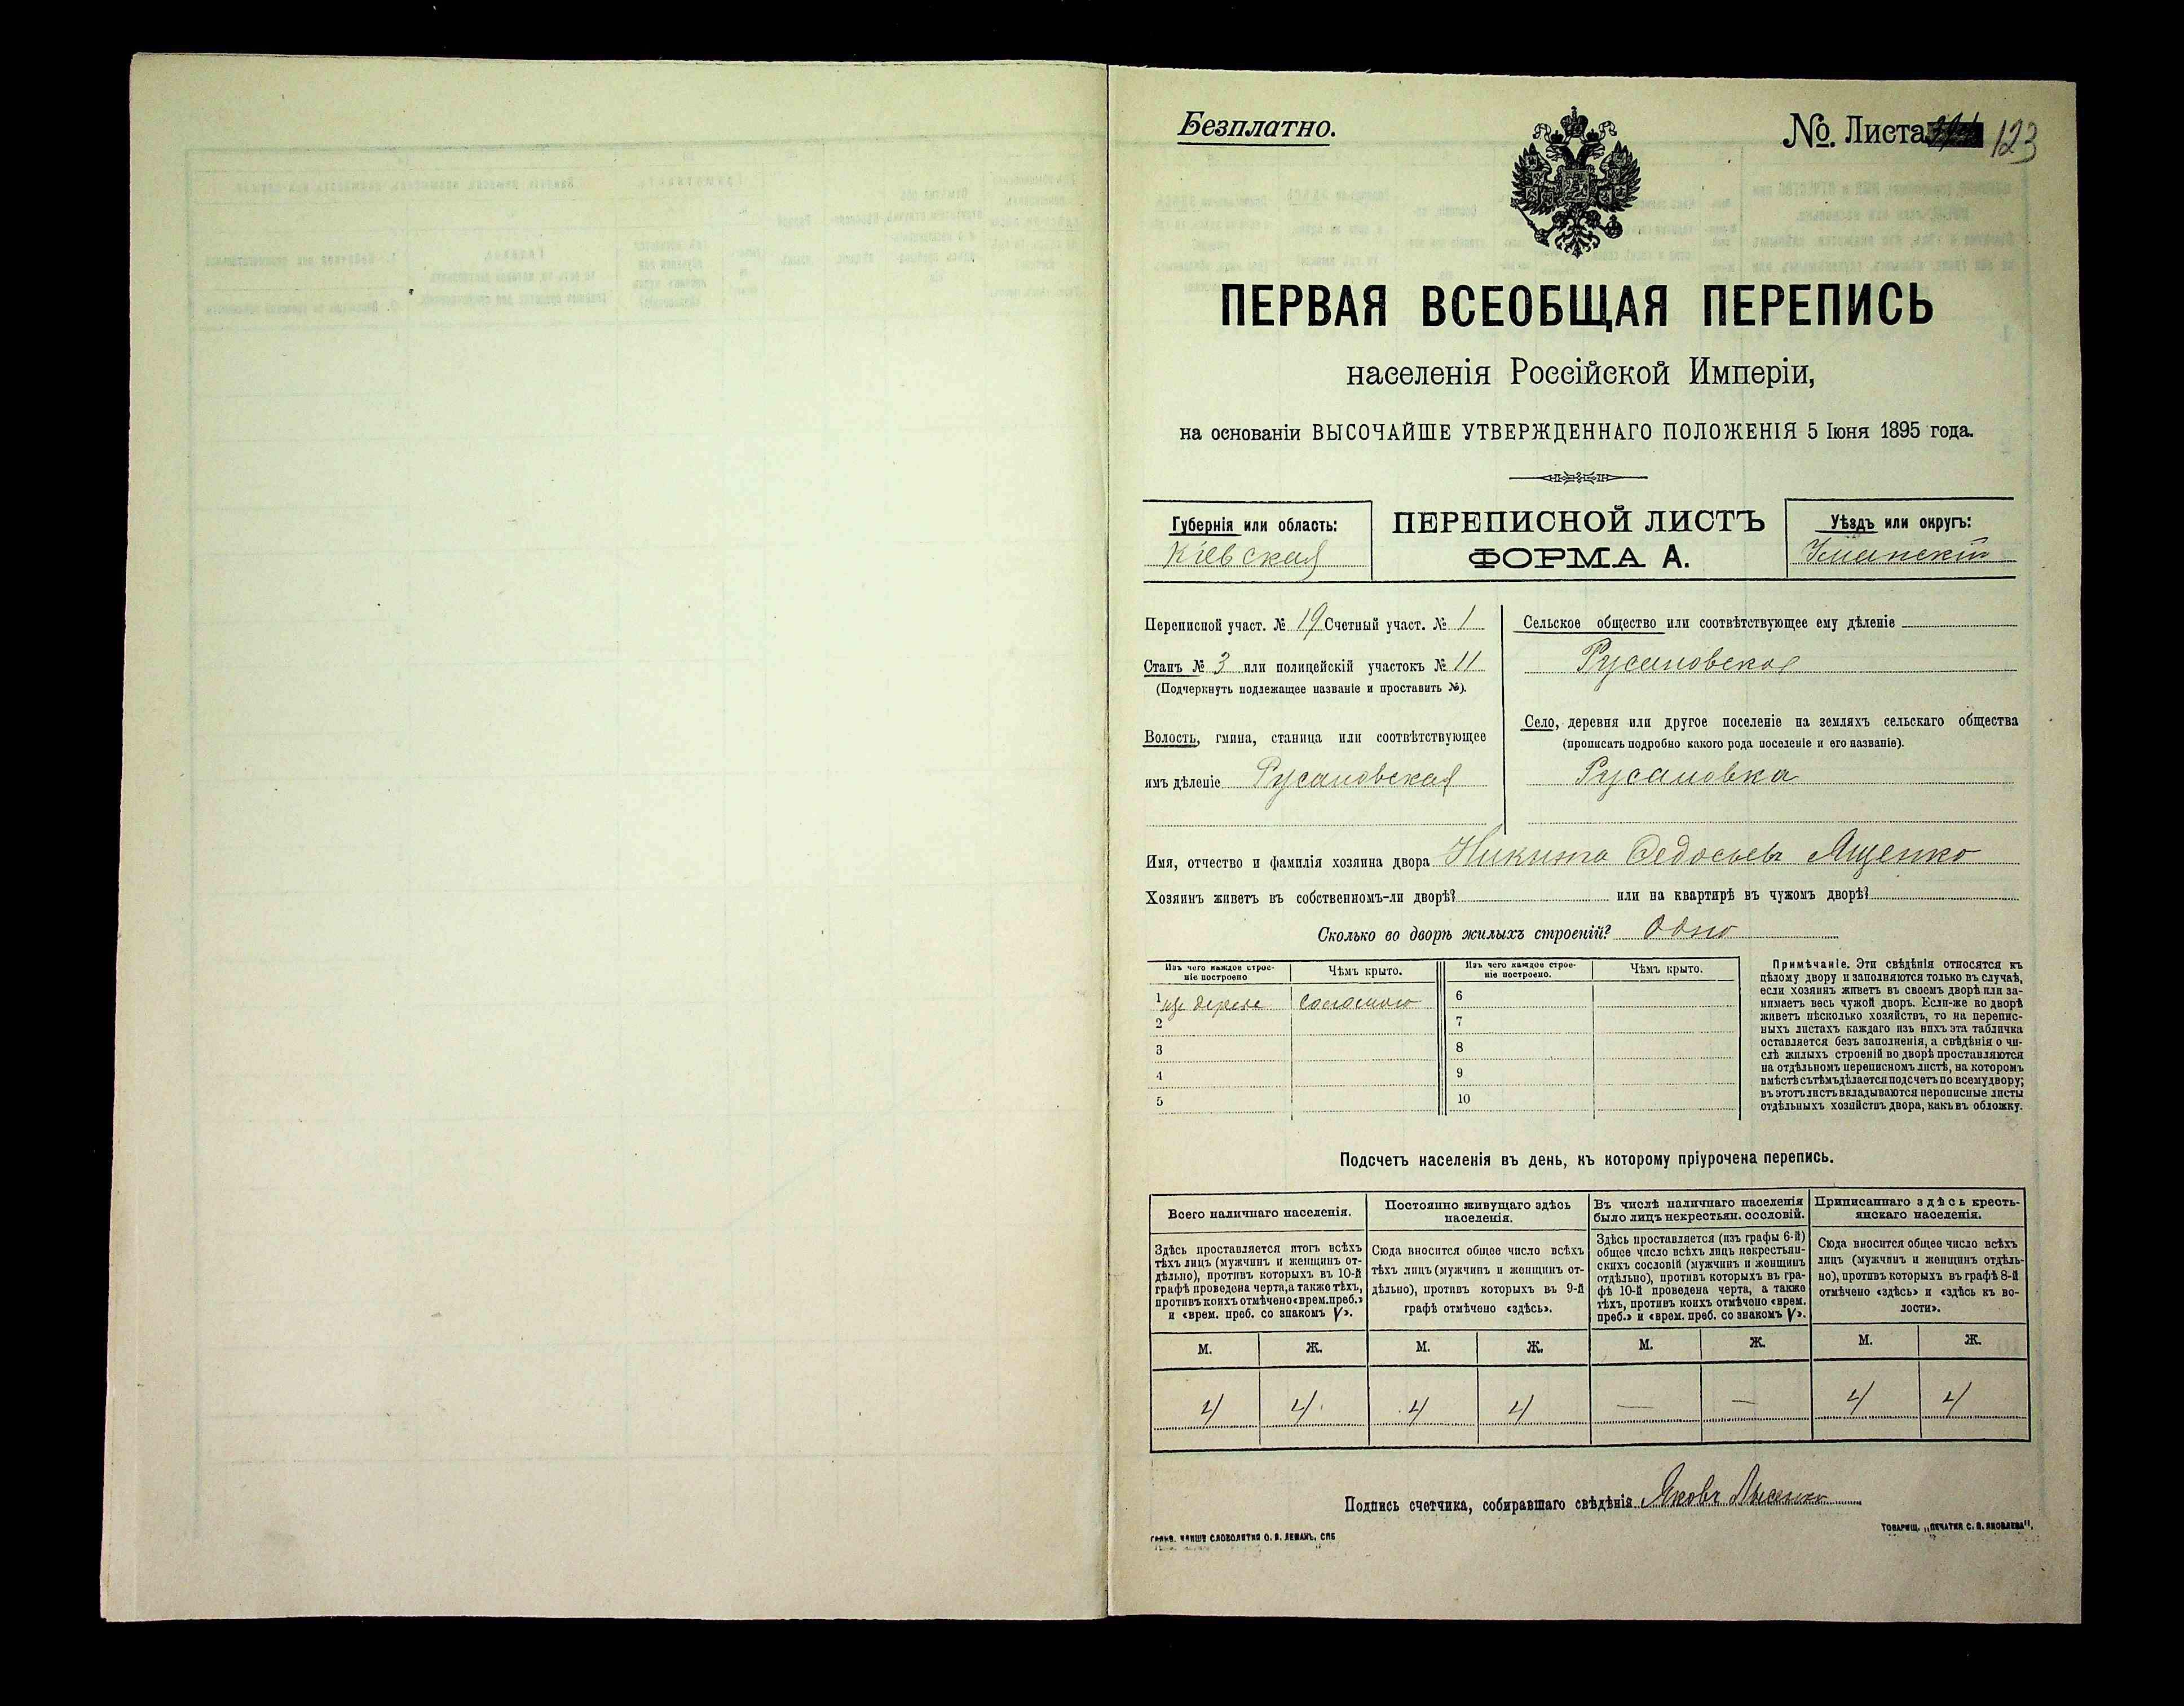 Безплатно.
№. Листа 123
ПЕРВАЯ ВСЕОБЩАЯ ПЕРЕПИСЬ
населенія Россійской Имперіи,
на основаніи ВЫСОЧАЙШЕ УТВЕРЖДЕННАГО ПОЛОЖЕНІЯ 5 Іюня 1895 года.
Губернія или область:
Кіевская
ПЕРЕПИСНОЙ ЛИСТЪ
ФОРМА А.
Уѣздъ или округъ:
Уманскій
Переписной участ. № 19 Счетный участ. № 1
Станъ № 3 или полицейскій участокъ № 11
(Подчеркнуть подлежащее названіе и проставить №).
Волость, гмина, станица или соотвѣтствующее
имъ дѣленіе Русаловская
Сельское общество или соотвѣтствующее ему дѣленіе
Русаловское
Село, деревня или другое поселеніе на земляхъ сельскаго общества
(прописать подробно какого рода поселеніе и его названіе).
Русаловка
Имя, отчество и фамилія хозяина двора Никита Федосьевъ Ященко
Хозяинъ живетъ въ собственномъ-ли дворѣ? или на квартирѣ въ чужомъ дворѣ?
Сколько во дворѣ жилыхъ строеній? Одно
Изъ чего каждое строе-
ніе построено
Чѣмъ крыто.
Изъ чего каждое строе-
ніе построено.
Чѣмъ крыто.
1 изъ дерева Соломою 6
2 7
3 8
4 9
5 10
Примѣчаніе. Эти свѣдѣнія относятся къ
цѣлому двору и заполняются только въ случаѣ,
если хозяинъ живетъ въ своемъ дворѣ или за-
нимаетъ весь чужой дворъ. Если-же во дворѣ
живетъ нѣсколько хозяйствъ, то на перепис-
ныхъ листахъ каждаго изъ нихъ эта табличка
оставляется безъ заполненія, а свѣдѣнія о чи-
слѣ жилыхъ строеній во дворѣ проставляются
на отдѣльномъ переписномъ листѣ, на которомъ
вмѣстѣ съ тѣмъ дѣлается подсчетъ по всему двору;
въ этотъ листъ вкладываются переписные листы
отдѣльныхъ хозяйствъ двора, какъ въ обложку.
Подсчетъ населенія въ день, къ которому пріурочена перепись.
Всего наличнаго населенія.
Здѣсь проставляется итогъ всѣхъ
тѣхъ лицъ (мужчинъ и женщинъ от-
дѣльно), противъ которыхъ въ 10-й
графѣ проведена черта, а также тѣхъ,
противъ коихъ отмѣчено «врем. преб.»
и «врем. преб. со знакомъ V».
Постоянно живущаго здѣсь
населенія.
Сюда вносится общее число всѣхъ
тѣхъ лицъ (мужчинъ и женщинъ от-
дѣльно), противъ которыхъ въ 9-й
графѣ отмѣчено «здѣсь».
Въ числѣ наличнаго населенія
было лицъ некрестьян. сословій.
Здѣсь проставляется (изъ графы 6-й)
общее число всѣхъ лицъ некрестьян-
скихъ сословій (мужчинъ и женщинъ
отдѣльно), противъ которыхъ въ гра-
фѣ 10-й проведена черта, а также
тѣхъ, противъ коихъ отмѣчено «врем.
преб.» и «врем. преб. со знакомъ V».
Приписаннаго здѣсь кресть-
янскаго населенія.
Сюда вносится общее число всѣхъ
лицъ (мужчинъ и женщинъ отдѣль-
но), противъ которыхъ въ графѣ 8-й
отмѣчено «здѣсь» и «здѣсь къ во-
лости».
М. Ж. М. Ж. М. Ж. М. Ж.
4 4 4 4 — — 4 4
Подпись счетчика, собиравшаго свѣдѣнія Яковъ Лысенко
СЛОВОЛИТНЯ О. И. ЛЕМАНЪ, СПБ
ТОВАРИЩ. „ПЕЧАТНЯ С. П. ЯКОВЛЕВА",